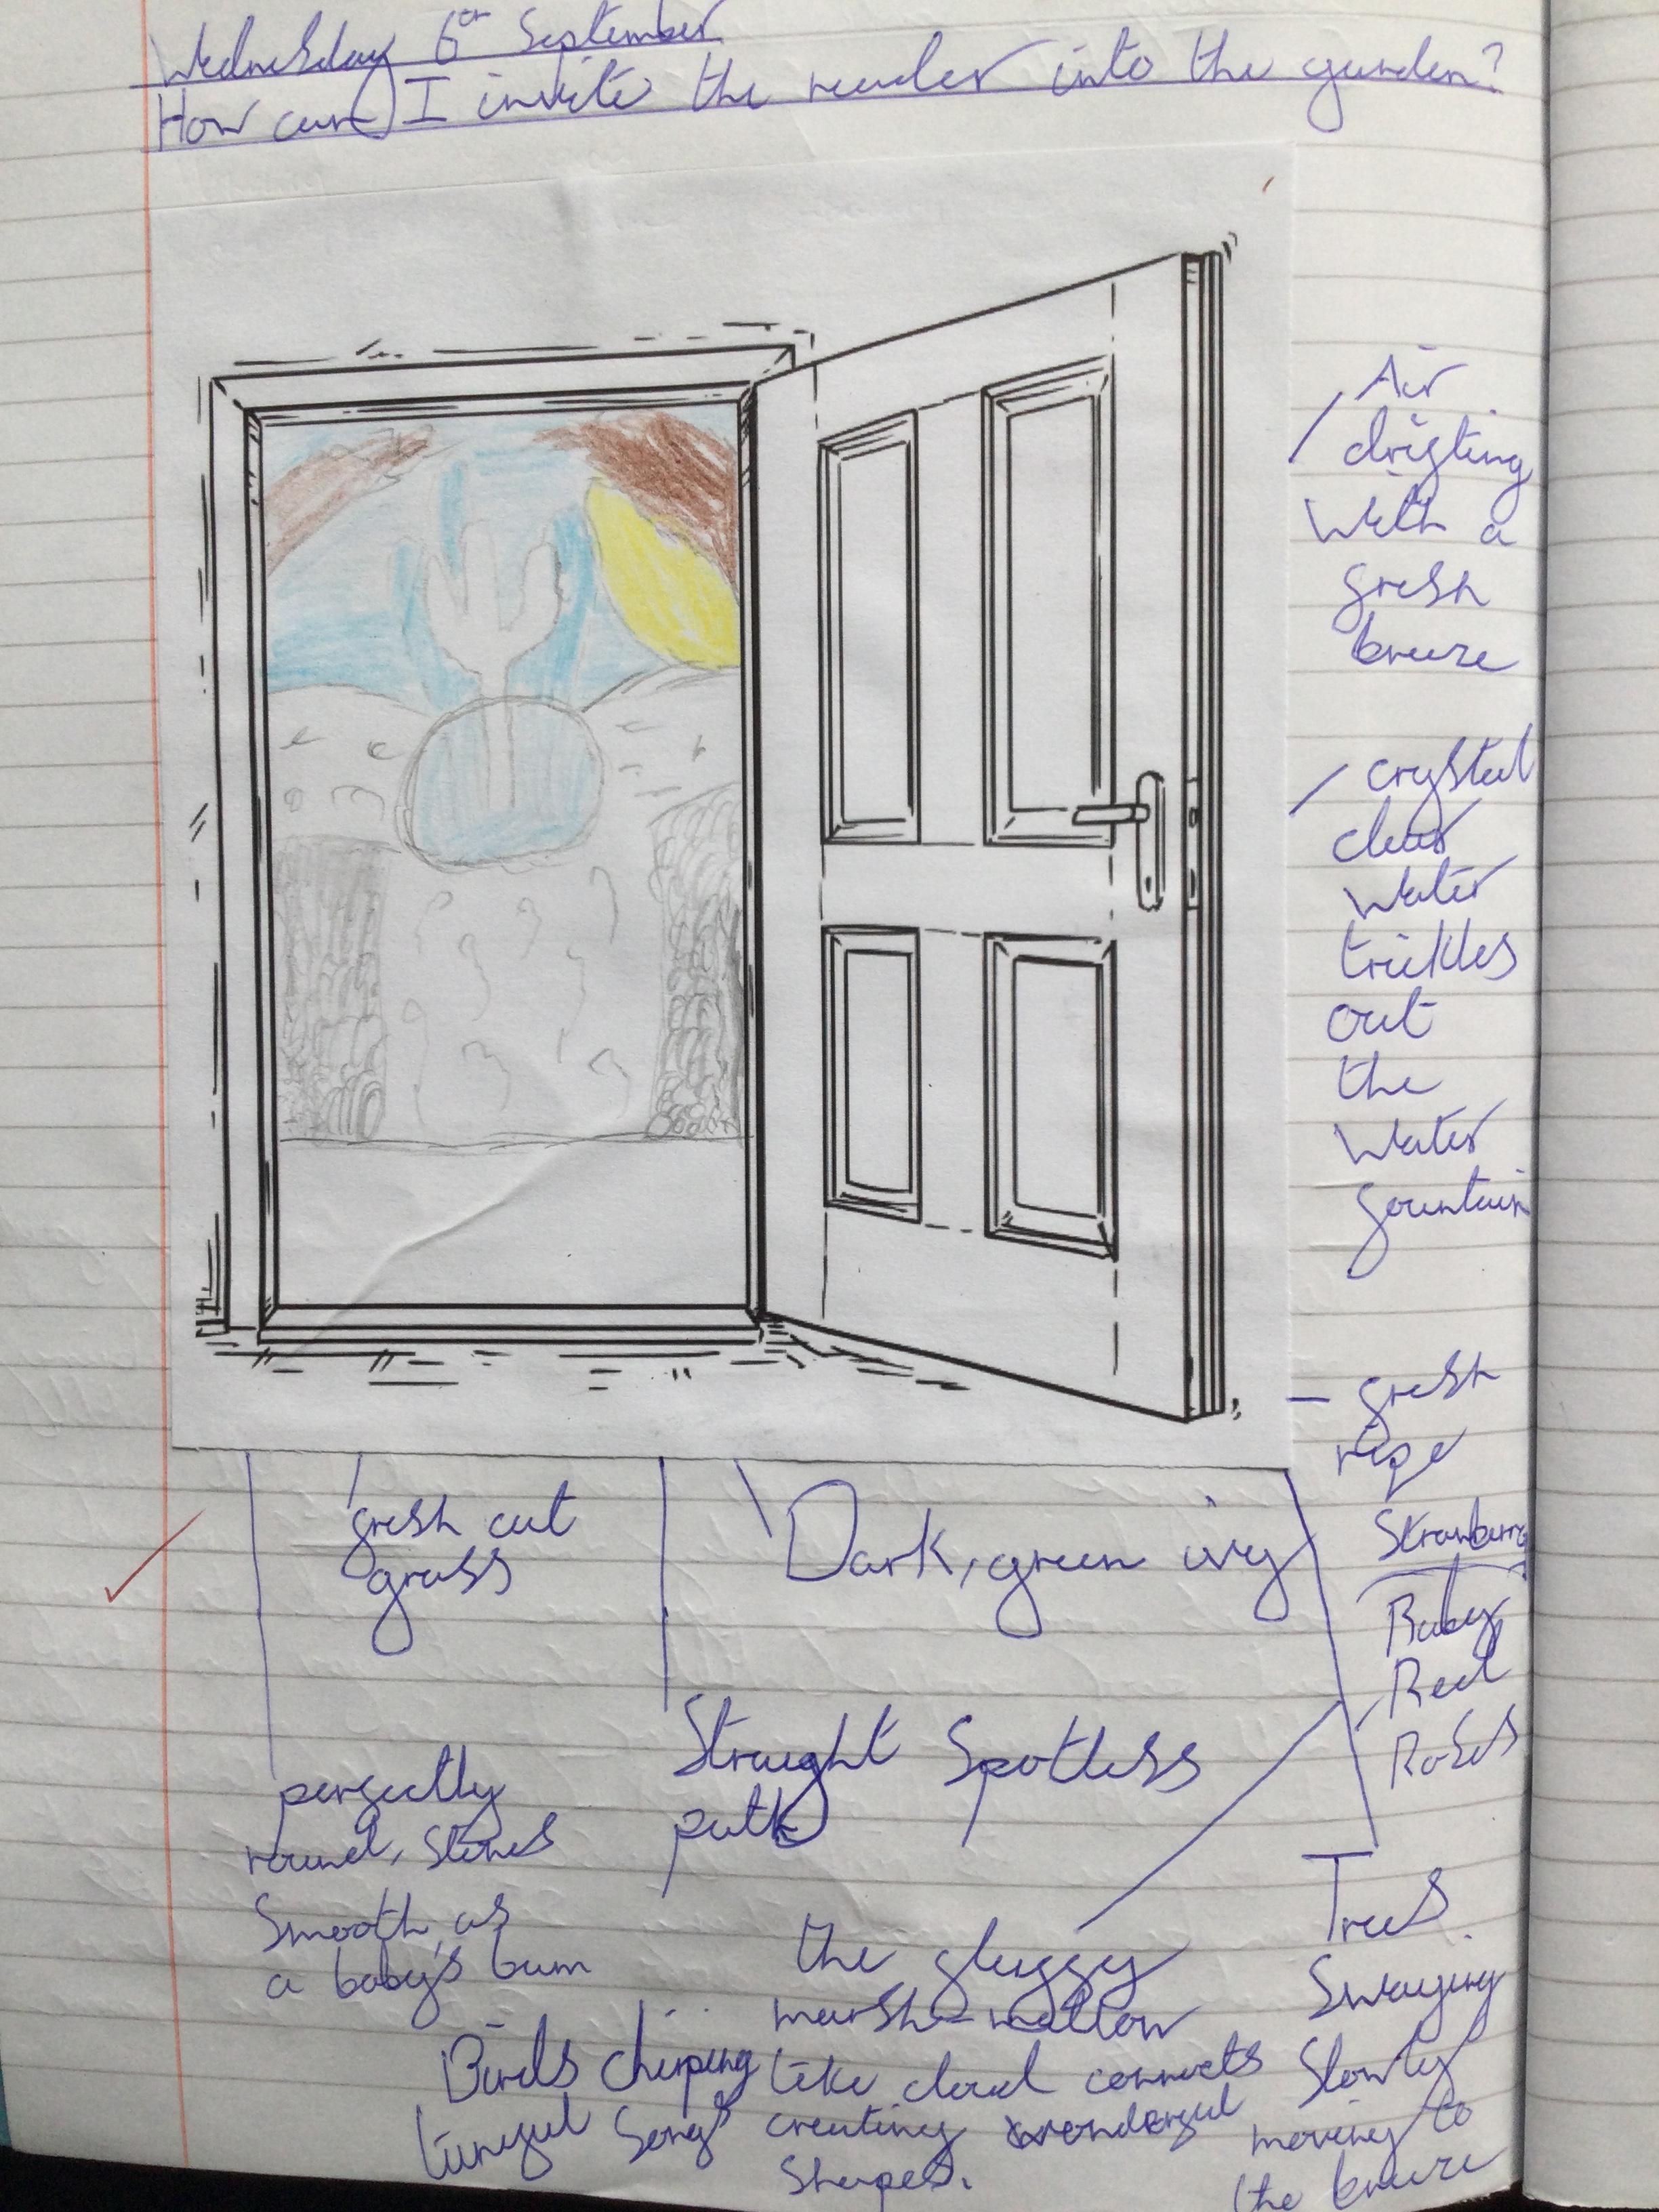 Wednesday 6th September
How can I invite the reader into the garden?
Air
drifting
with a
fresh
breeze
crystal
clear
water
trickles
out
the
water
fountain
fresh
ripe
Strawberry
Ruby
Red
Roses
fresh cut
grass
Dark, green ivy
Straight Spotless
path
perfectly
round, stones
Smooth as
a baby's bum
the fluffy
marsh-mallow
like cloud connects
creating wonderful
shapes.
Birds chirping
tuneful songs
Trees
Swaying
Slowly
moving to
the breeze